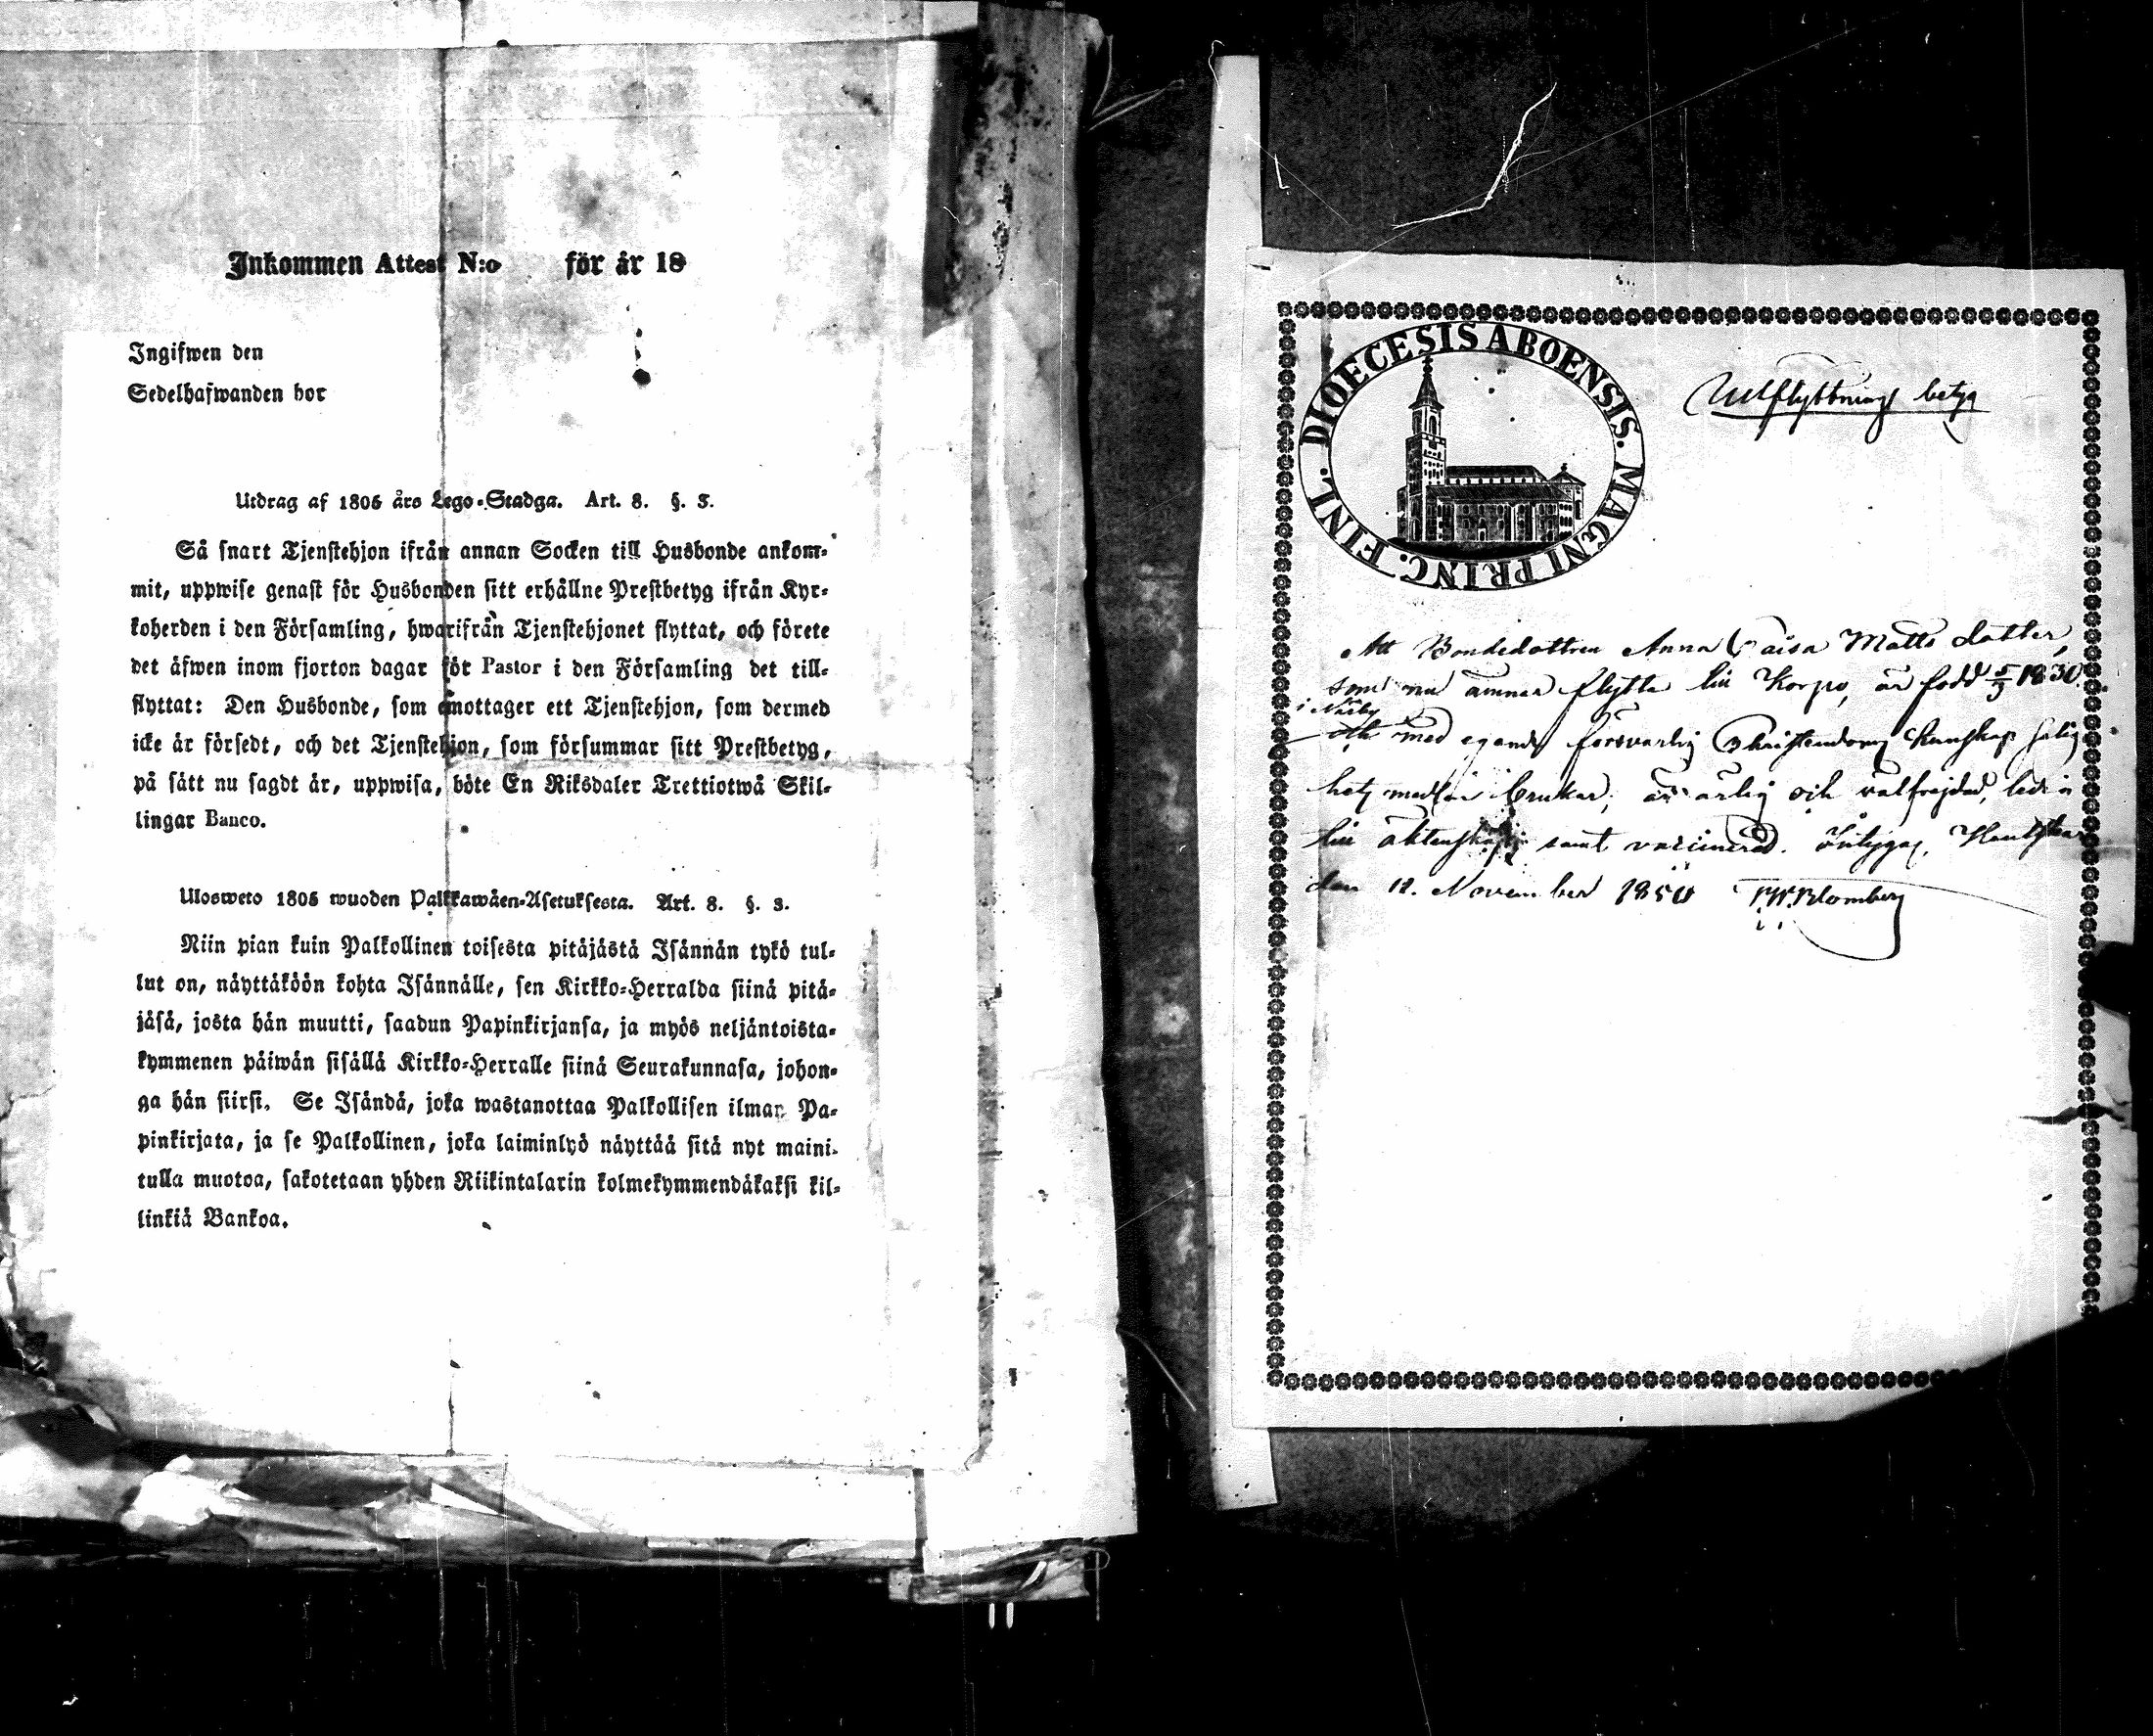 Inkommen Attest N:o för år 18
Ingifwen den
Sedelhafwanden bor
Utdrag af 1805 års Lego-Stadga. Art. 8. §. 3.
Så snart Tjenstehjon ifrån annan Socken till Husbonde ankom-
mit, uppwise genast för Husbonden sitt erhållne Prestbetyg ifrån Kyr-
koherden i den Församling, hwarifrån Tjenstehjonet flyttat, och förete
det äfwen inom fjorton dagar för Pastor i den Församling det till-
flyttat: Den Husbonde, som emottager ett Tjenstehjon, som dermed
icke är försedt, och det Tjenstehjon, som försummar sitt Prestbetyg,
på sätt nu sagdt är, uppwisa, böte En Riksdaler Trettiotwå Skil-
lingar Banco.
Ulosweto 1805 wuoden Palkkawäen-Asetuksesta. Art. 8. §. 3.
Niin pian kuin Palkollinen toisesta pitäjästä Isännän tykö tul-
lut on, näyttäköön kohta Isännälle, sen Kirkko-Herralda siinä pitä-
jäsä, josta hän muutti, saadun Papinkirjansa, ja myös neljäntoista-
kymmenen päiwän sisällä Kirkko-Herralle siinä Seurakunnasa, johon-
ga hän siirsi. Se Isändä, joka wastanottaa Palkollisen ilman Pa-
pinkirjata, ja se Palkollinen, joka laiminlyö näyttää sitä nyt maini-
tulla muotoa, sakotetaan yhden Riikintalarin kolmekymmendäkaksi kil-
linkiä Bankoa.
DIOECESIS ABOENSIS. MAGNI PRINC. FINL.
Utflyttnings betyg
Att Bondedottren Anna Caisa Matts dotter,
som nu ämnar flytta till Korpo, är född 5/3 1830
i Näsby
och med egande försvarlig Christendoms Kunskap salig
hets medlen brukar, är ärlig och välfrejdad, ledig
till äktenskap samt vaccinerad. Intygas,
den 11. November 1850 Blomberg